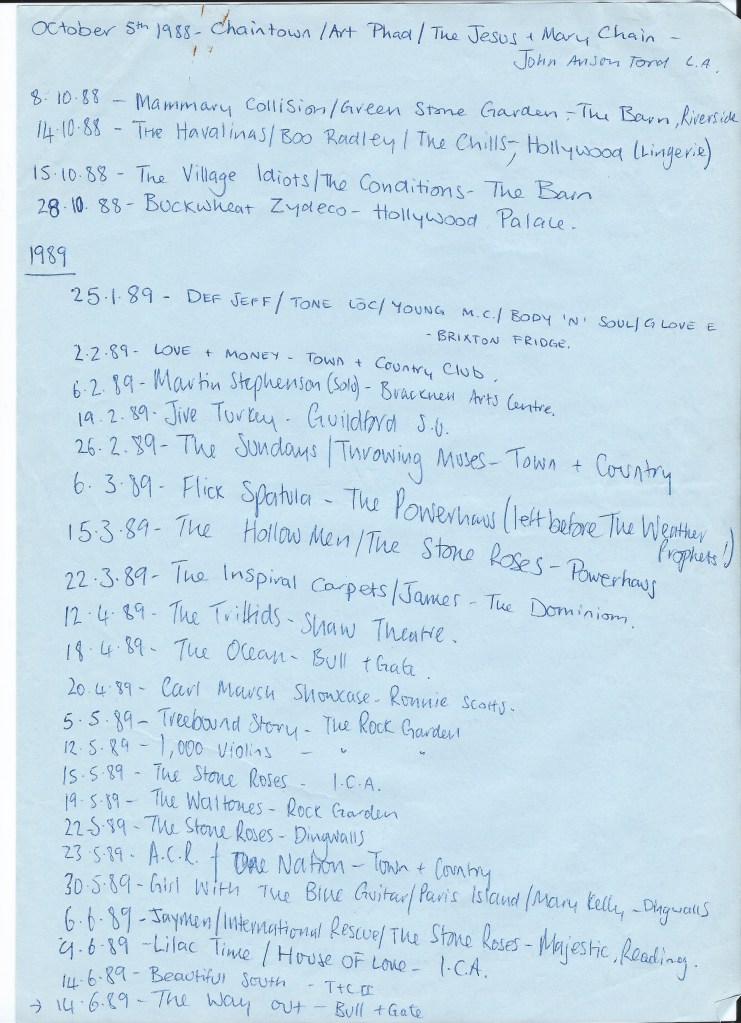 October 5th 1988 - Chaintown / Art Phad / The Jesus + Mary Chain -
John Anson Ford L.A.
8.10.88 - Mammary Collision/Green Stone Garden - The Barn, Riverside
14.10.88 - The Havalinas/Boo Radley / The Chills - Hollywood (Lingerie)
15.10.88 - The Village Idiots/The Conditions - The Barn
28.10.88 - Buckwheat Zydeco - Hollywood Palace.
1989
25.1.89 - DEF JEFF / TONE LOC / YOUNG M.C. / BODY 'N' SOUL / G LOVE E
- BRIXTON FRIDGE.
2.2.89 - LOVE + MONEY - TOWN + Country Club.
6.2.89 - Martin Stephenson (Solo) - Bracknell Arts Centre.
19.2.89 - Jive Turkey - Guildford S.U.
26.2.89 - The Sundays / Throwing Muses - Town + Country
6.3.89 - Flick Spatula - The Powerhaus (left before The Weather
Prophets!)
15.3.89 - The Hollow Men / The Stone Roses - Powerhaus
22.3.89 - The Inspiral Carpets / James - The Dominion.
12.4.89 - The Triffids - Shaw Theatre.
18.4.89 - The Ocean - Bull + Gate.
20.4.89 - Carl Marsh Showcase - Ronnie Scotts.
5.5.89 - Treebound Story - The Rock Garden
12.5.89 - 1,000 Violins - " "
15.5.89 - The Stone Roses - I.C.A.
19.5.89 - The Waltones - Rock Garden
22.5.89 - The Stone Roses - Dingwalls
23.5.89 - A.C.R. / One Nation - Town + Country
30.5.89 - Girl With The Blue Guitar / Paris Island / Mary Kelly - Dingwalls
6.6.89 - Jaymen / International Rescue / The Stone Roses - Majestic, Reading.
9.6.89 - Lilac Time / House Of Love - I.C.A.
14.6.89 - Beautiful South - T+C II
→ 14.6.89 - The Way Out - Bull + Gate